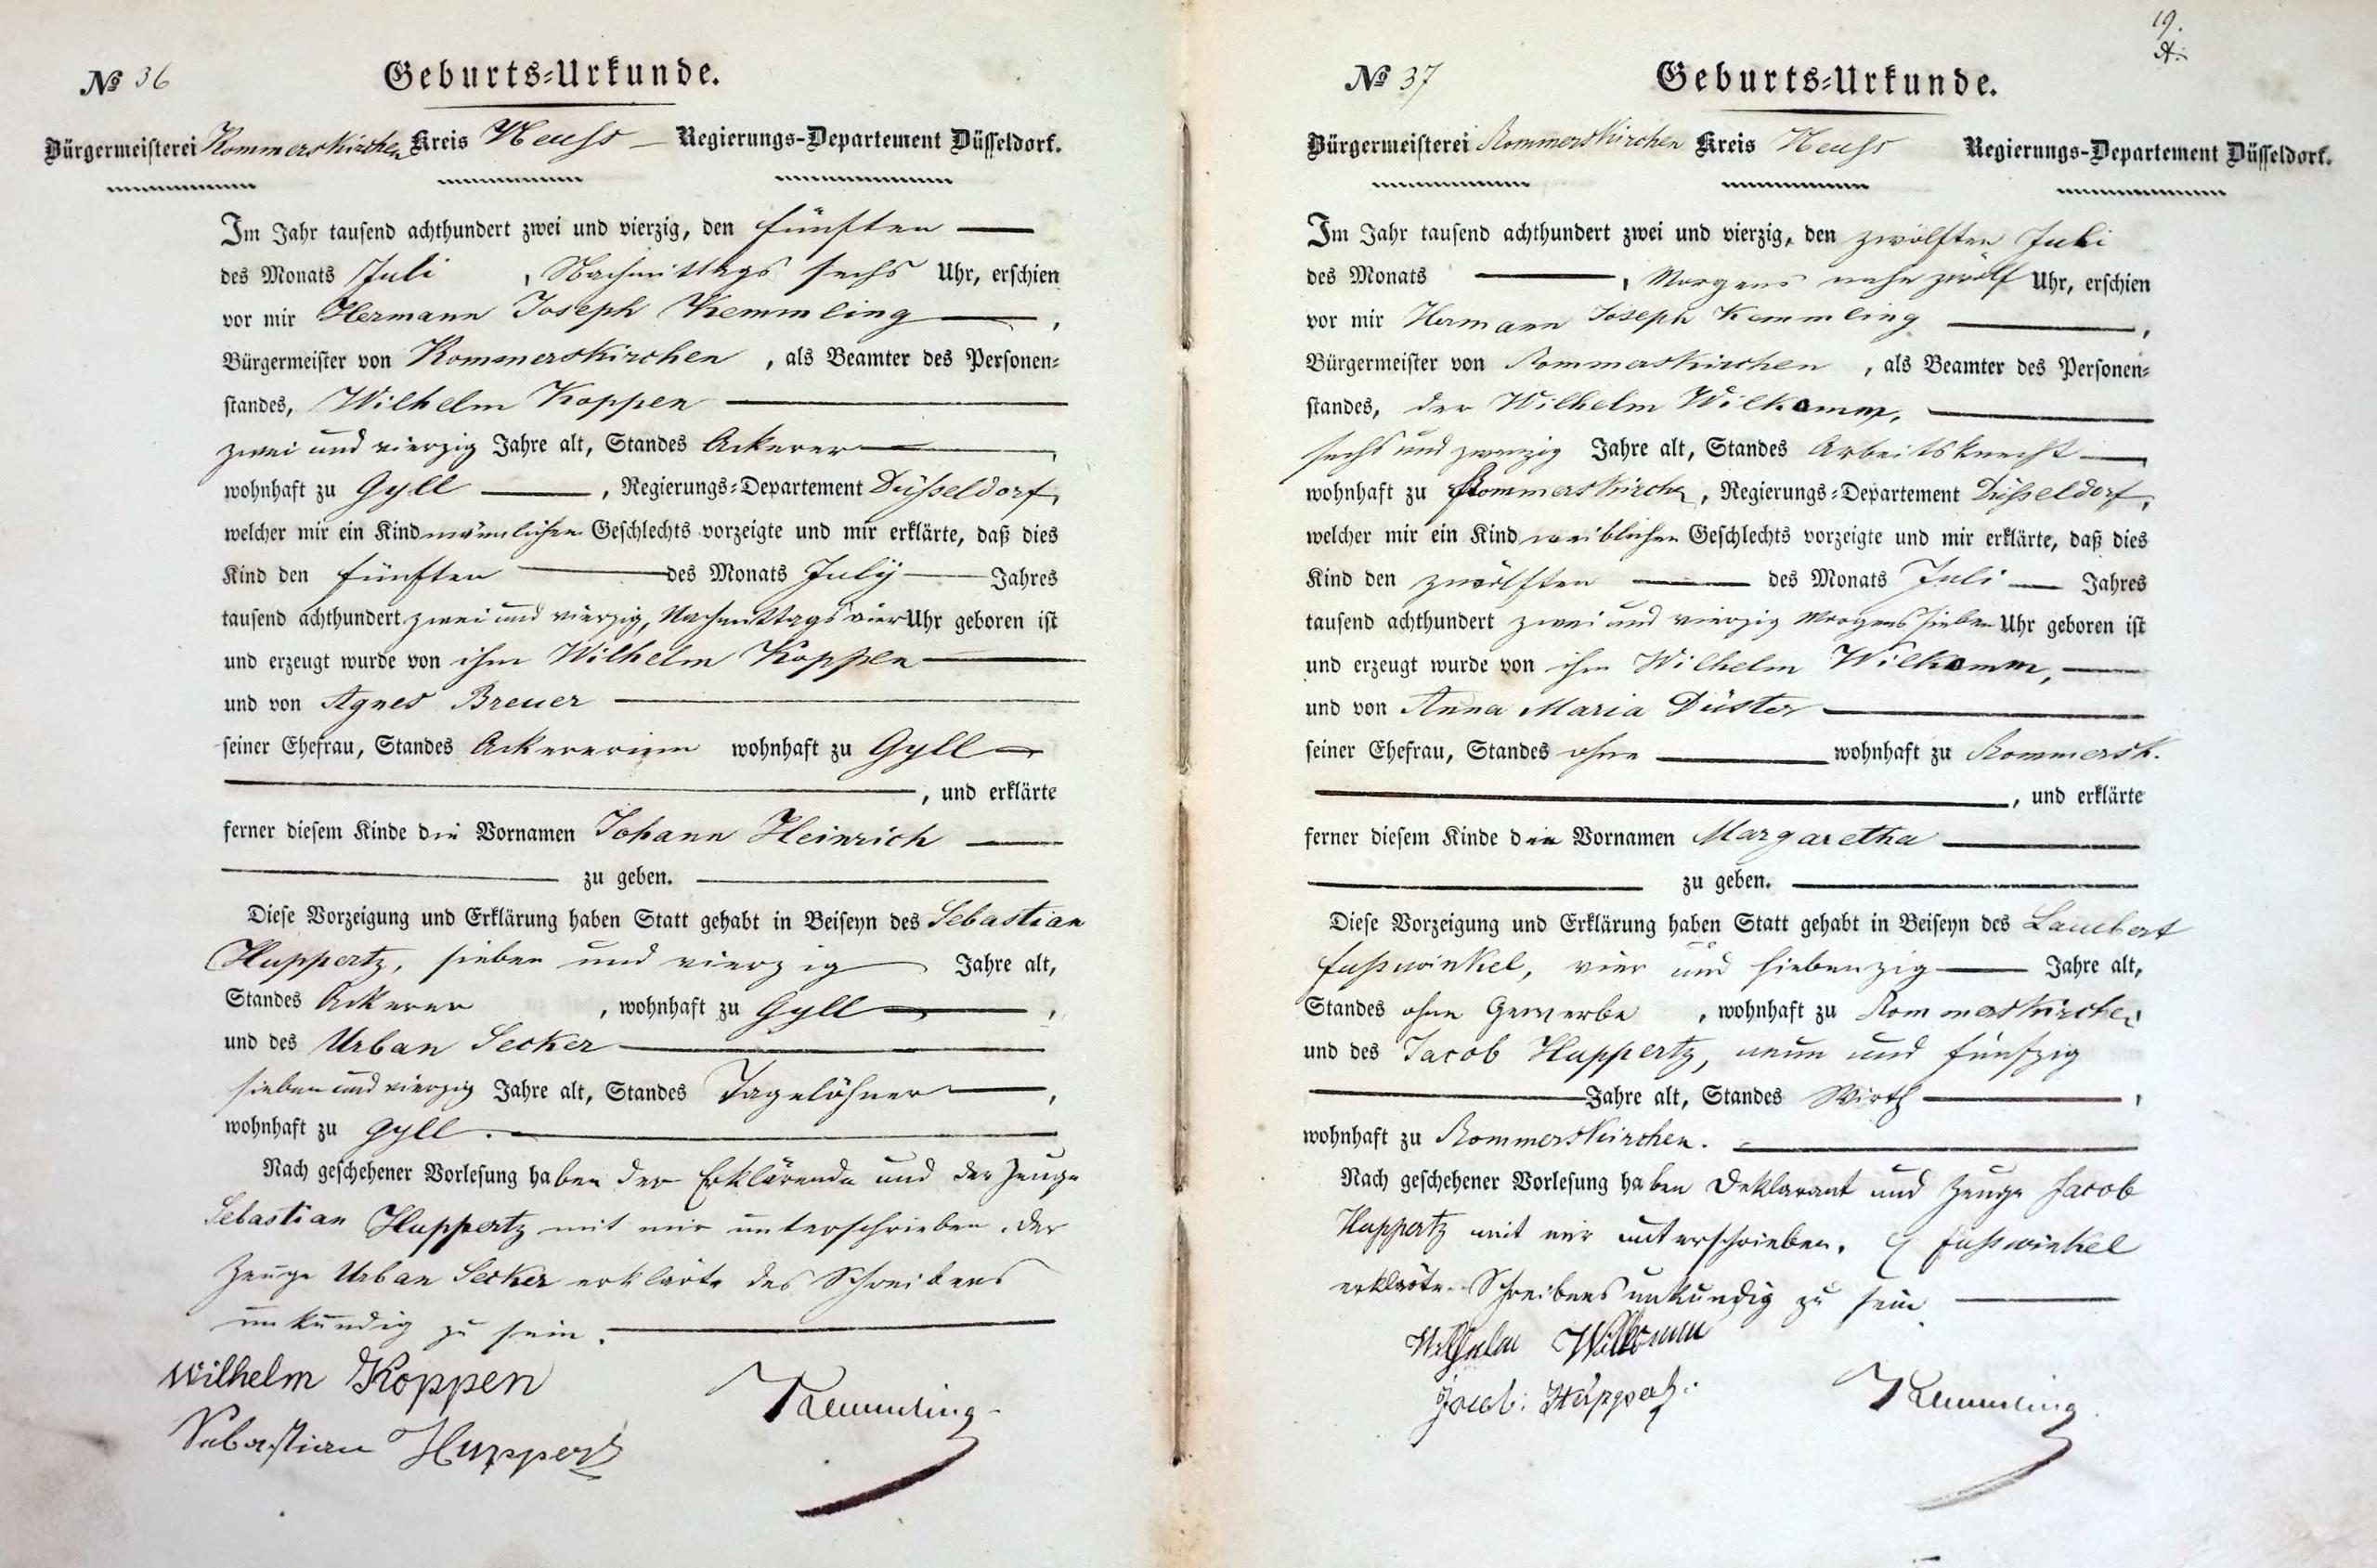 № 36
Geburts-Urkunde.
Bürgermeisterei Rommerskirchen Kreis Neuss Regierungs-Departement Düsseldorf.
Im Jahr tausend achthundert zwei und vierzig, den fünften
des Monats Juli, Nachmittags sechs Uhr, erschien
vor mir Hermann Joseph Kemmling,
Bürgermeister von Rommerskirchen, als Beamter des Personen-
standes, Wilhelm Koppen
zwei und vierzig Jahre alt, Standes Ackerer,
wohnhaft zu Gyll, Regierungs-Departement Düsseldorf,
welcher mir ein Kind männlichen Geschlechts vorzeigte und mir erklärte, daß dies
Kind den fünften des Monats July Jahres
tausend achthundert zwei und vierzig, Nachmittags vier Uhr geboren ist
und erzeugt wurde von ihm Wilhelm Koppen
und von Agnes Breuer
seiner Ehefrau, Standes Ackererinn wohnhaft zu Gyll
, und erklärte
ferner diesem Kinde die Vornamen Johann Heinrich
zu geben.
Diese Vorzeigung und Erklärung haben Statt gehabt in Beiseyn des Sebastian
Huppertz, sieben und vierzig Jahre alt,
Standes Ackerer, wohnhaft zu Gyll,
und des Urban Secker
sieben und vierzig Jahre alt, Standes Tagelöhner,
wohnhaft zu Gyll.
Nach geschehener Vorlesung haben der Erklärende und der Zeuge
Sebastian Huppertz mit mir unterschrieben. Der
Zeuge Urban Secker erklärte des Schreibens
unkundig zu sein.
Wilhelm Koppen
Kemmling
Sebastian Huppertz
19.
№ 37
Geburts-Urkunde.
Bürgermeisterei Rommerskirchen Kreis Neuss Regierungs-Departement Düsseldorf.
Im Jahr tausend achthundert zwei und vierzig, den zwölften Juli
des Monats, Morgens nahe zwölf Uhr, erschien
vor mir Hermann Joseph Kemmling,
Bürgermeister von Rommerskirchen, als Beamter des Personen-
standes, der Wilhelm Wilkomm,
sechs und zwanzig Jahre alt, Standes Arbeitsknecht,
wohnhaft zu Rommerskirchen, Regierungs-Departement Düsseldorf,
welcher mir ein Kind weiblichen Geschlechts vorzeigte und mir erklärte, daß dies
Kind den zwölften des Monats Juli Jahres
tausend achthundert zwei und vierzig Morgens sieben Uhr geboren ist
und erzeugt wurde von ihm Wilhelm Wilkomm,
und von Anna Maria Düster
seiner Ehefrau, Standes ohne wohnhaft zu Rommersk.
, und erklärte
ferner diesem Kinde den Vornamen Margaretha
zu geben.
Diese Vorzeigung und Erklärung haben Statt gehabt in Beiseyn des Lambert
Fußwinkel, vier und siebenzig Jahre alt,
Standes ohne Gewerbe, wohnhaft zu Rommerskirchen,
und des Jacob Huppertz, neun und fünfzig
Jahre alt, Standes Wirth,
wohnhaft zu Rommerskirchen.
Nach geschehener Vorlesung haben Deklarant und Zeuge Jacob
Huppertz mit mir unterschrieben. Fußwinkel
erklärte Schreibens unkundig zu sein
Wilhelm Willkomm
Jacob Huppertz
Kemmling